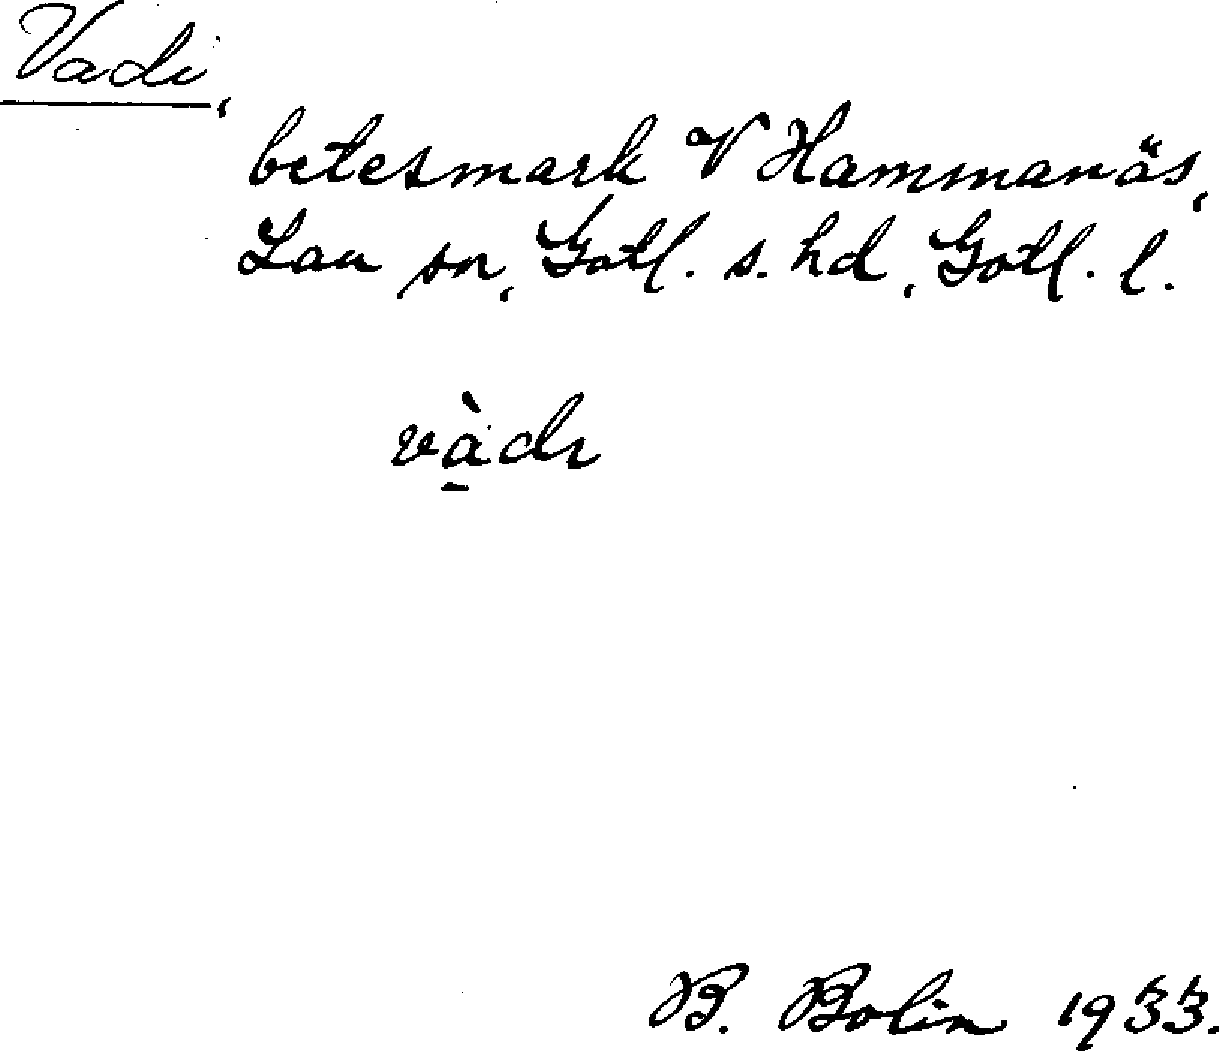 Vadi,
betesmark V Hammanäs,
Lau sn, Gotl. s. hd, Gotl. l.
và̠dı
B. Bolin 1933.